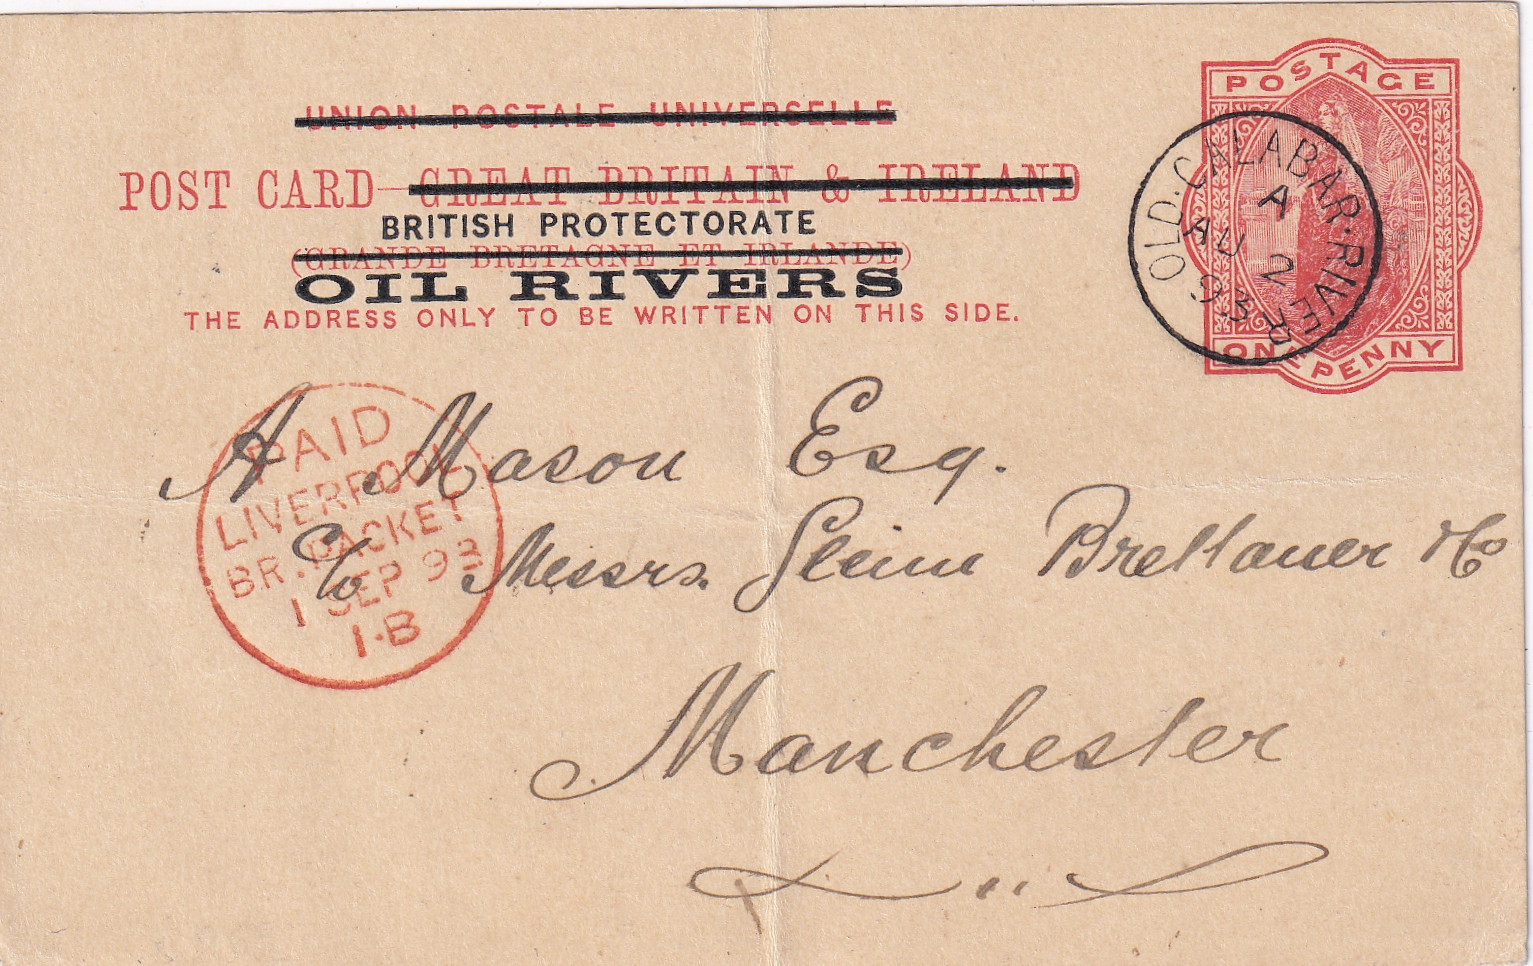 UNION POSTALE UNIVERSELLE
POST CARD—GREAT BRITAIN & IRELAND
BRITISH PROTECTORATE
(GRANDE BRETAGNE ET IRLANDE)
OIL RIVERS
THE ADDRESS ONLY TO BE WRITTEN ON THIS SIDE.
POSTAGE
ONE PENNY
OLD·CALABAR·RIVER
A
AU 2
93
PAID
LIVERPOOL
BR. PACKET
1 SEP 93
1·B
A Mason Esq.
C/o Messrs. Brettauer & Co
Manchester